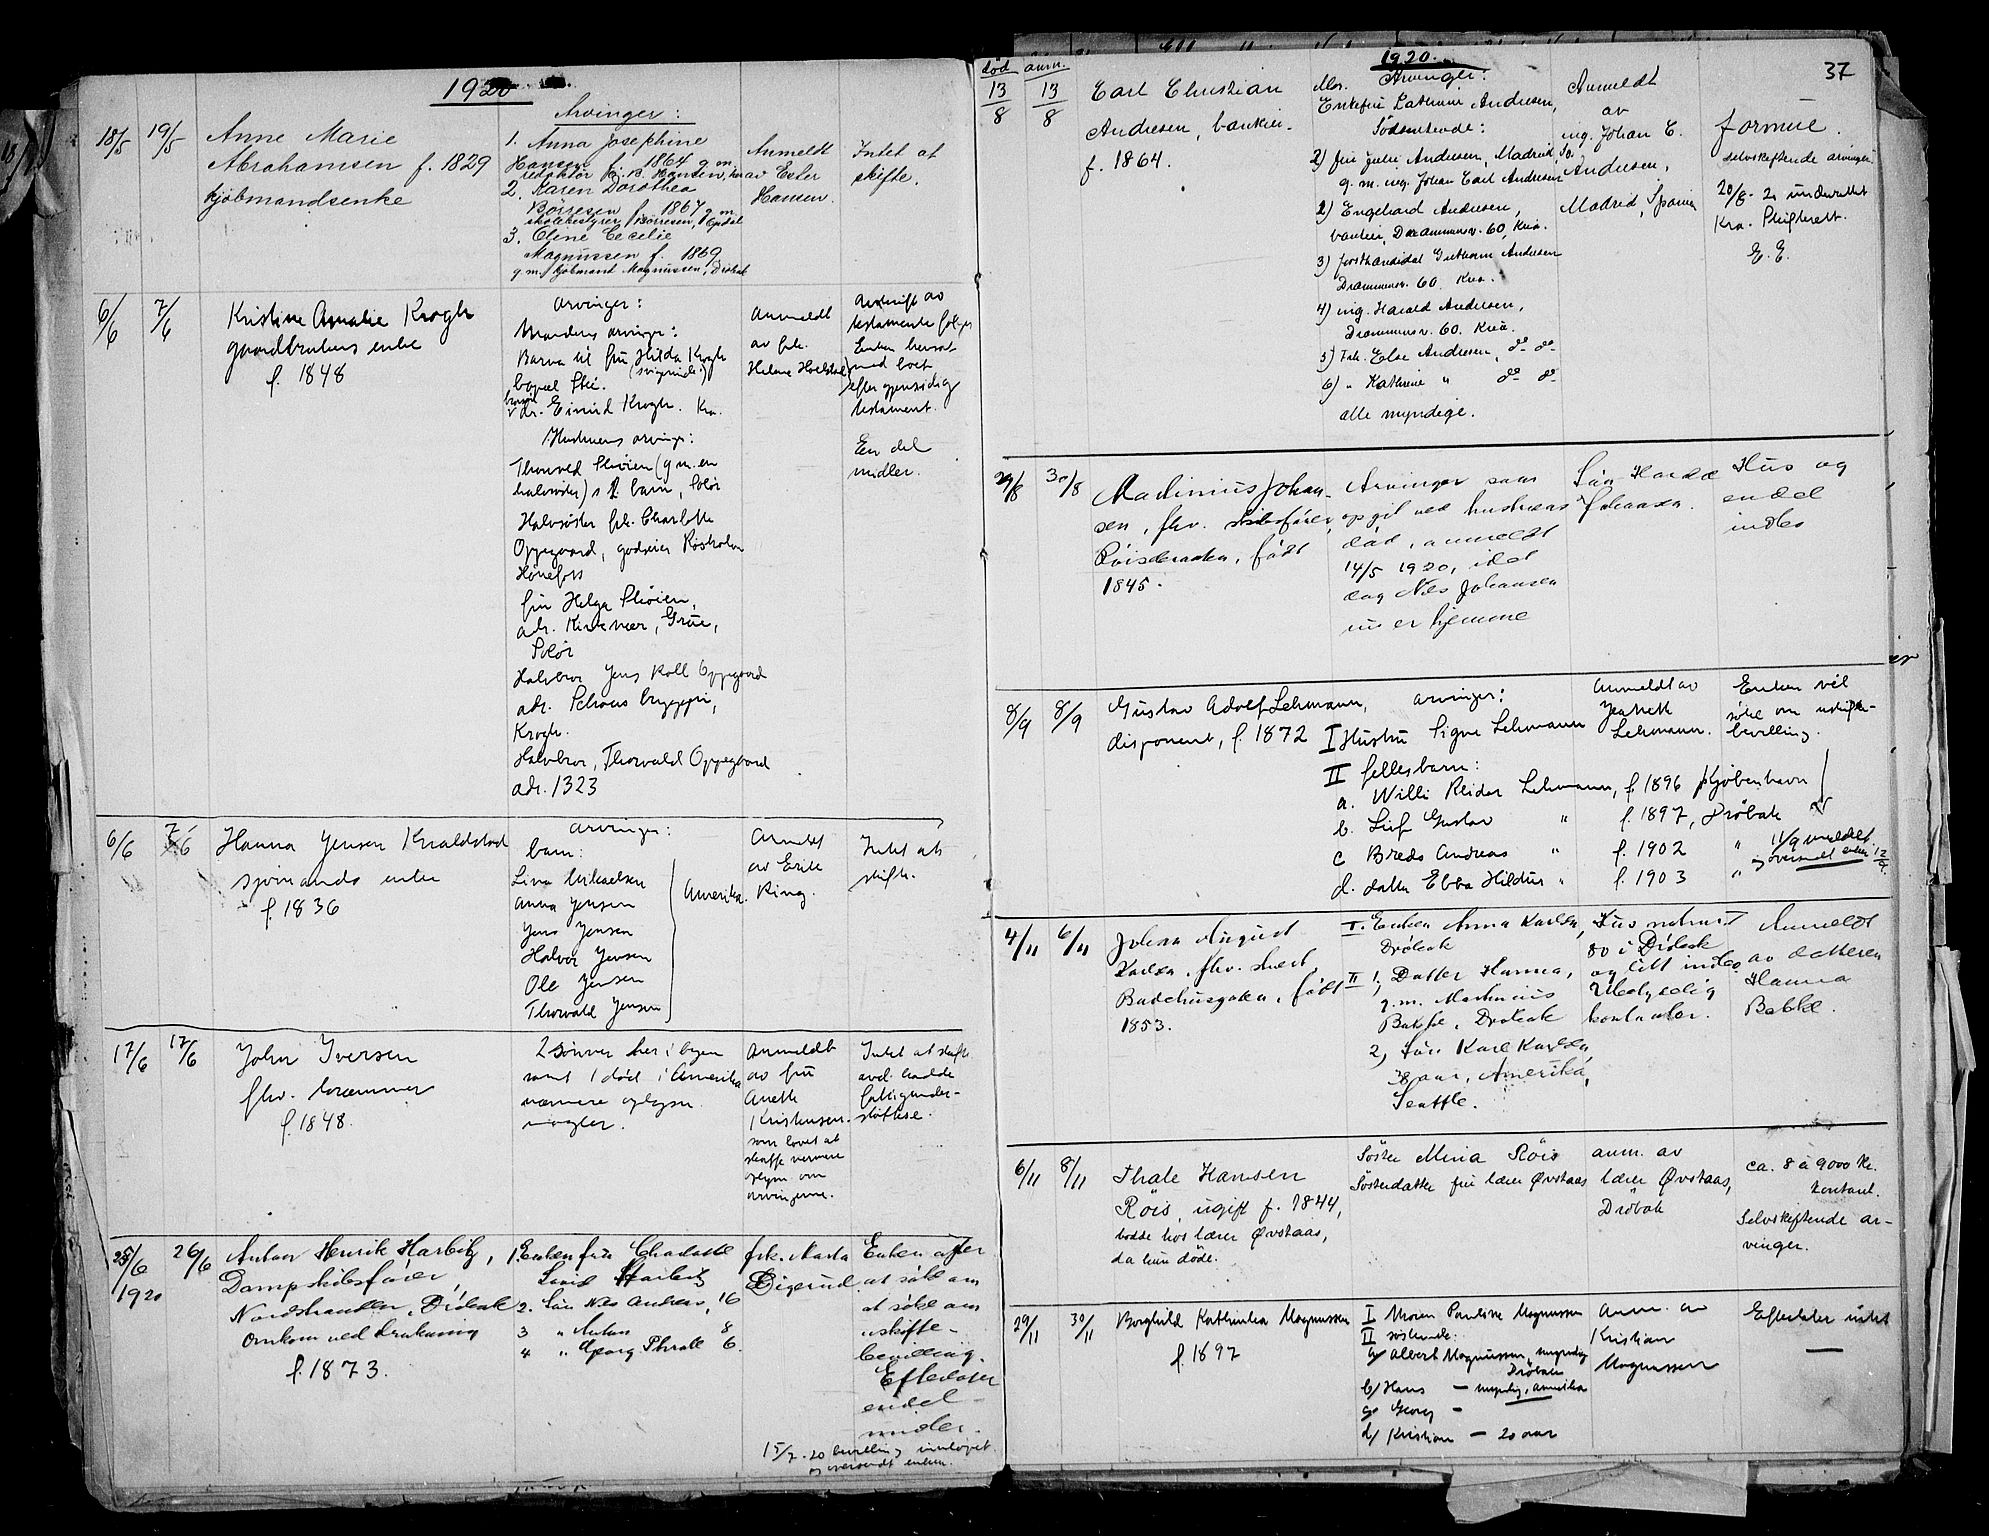 1920
Arvinger:
18/5 19/5 Anne Marie
Abrahamsen f. 1829
kjøbmandsenke
1. Anna Josephine
Hansen f. 1864 g.m.
redaktør Hansen, her
2. Karen Dorothea
Børresen f. 1867 g.m.
skolebestyrer Børresen,
3. Oline Cecilie
Magnussen f. 1869
g.m. kjøbmand Magnussen, Drøbak
Anmeldt
av Ester
Hansen.
Intet at
skifte.
6/6 7/6 Kristine Amalie Krogh
gaardbrukers enke
f. 1848
Arvinger:
Mandens arvinger:
Barna til fru Hilda Krogh
(svigerinde)
dr. Eivind Krogh. Kra.
Hustruens arvinger:
Thorvald Skiøien (g.m. en
halvsøster) s barn, Solør
Halvsøster frk. Charlotte
Oppegaard, Røsholm
Hønefoss
fru Helga Skiøien,
adr. Kirkenær, Grue,
Solør
Halvbror Jens Koll Oppegaard
adr. Schous bryggeri,
Krogh.
Halvbror, Thorvald Oppegaard
adr. 1323
Anmeldt
av frk.
Helene Hoelstad
Avskrift av
testamente følger
Enken hensat
med boet
efter gjensidig
testament.
En del
midler.
6/6 7/6 Hanna Jensen Knaldstad
sjømands enke
f. 1836
Arvinger:
barn:
Lina Mikaelsen
Anna Jensen
Jens Jensen
Halvor Jensen
Ole Jensen
Thorvald Jensen
Amerika.
Anmeldt
av Erik
Ring.
Intet at
skifte.
17/6 17/6 John Iversen
fhv. kræmmer
f. 1848.
2 sønner her i byen
samt 1 død i Amerika
nærmere oplysn.
mangler.
Anmeldt
av fru
Anette
Kristensen.
som lovet at
skaffe nærmere
oplysn om
arvingerne.
Intet at skifte.
avd. hadde
fattigunder-
støttelse.
25/6 1920 26/6 Anton Henrik Harbitz,
Dampskibsfører,
Nordstranden, Drøbak
Omkom ved drukning
f. 1873.
1. Enken fru Charlotte
Lovise Harbitz
2. Søn Nils Andreas, 16
3 " Anton 8
4 " Georg Thrall 6.
frk. Marta
Digerud.
Enken agter
at søke om
at søke om
uskifte-
bevilling.
Efterlater
endel
midler.
15/7-20 bevilling innløpet
og oversendt enken.
1920.
37
død anm.
13/8 13/8 Carl Christian
Andresen, bankier.
f. 1864.
Arvinger:
Enkefru Cathrine Andresen,
Sødskende:
1) fru Julie Andresen, Madrid,
g.m. ing. Johan Carl Andresen
2) Engelhard Andresen,
bankier, Drammensv. 60, Kra.
3) forstkandidat Andresen
Drammensv. 60. Kra.
4) ing. Harald Andresen,
Drammensv. 60. Kra.
5) Frk. Else Andresen, do do
6) " Kathrine " do do
alle myndige.
Anmeldt
av
ing. Johan C.
Andresen,
Madrid, Spania
formue.
selvskiftende arvinger
20/8-20 underrettet
Kra. Skifterett.
E.E.
29/8 30/8 Martinius Johan-
sen, fhv. skibsfører,
født
1845.
Arvinger som
opgit ved hustruens
død, anmeldt
14/5 1920, idet
dog Nils Johansen
nu er hjemme
Søn Harda
Johansen.
Hus og
endel
indbo
8/9 8/9 Gustav Adolf Lehmann,
disponent, f. 1872
Arvinger:
I Hustru Signe Lehmann
II fellesbarn:
a. Willi Reidar Lehmann, f. 1896 Kjøbenhavn
b. Leif Gustav " f. 1897, Drøbak
c Bredo Andreas " f. 1902 "
d. datter Ebba Hildur " f. 1903 "
Anmeldt av
Jeanett
Lehmann.
Enken vil
søke om uskifte-
bevilling.
11/9 meldet
og oversendt enken 12/9.
4/11 6/11 Johan August
Karlsen, fhv.
Badehusgaten, født
1853.
I. Enken Anna Karlsen,
Drøbak
II 1, Datter Hanna,
g.m. Martinius
Bakke, Drøbak
2, Søn Karl Karlsen
38 aar, Amerika,
Seattle.
Hus matr. nr
80 i Drøbak
og litt indbo
Ubetydelig
kontanter.
Anmeldt
av datteren
Hanna
Bakke.
6/11 8/11 Thale Hansen
Røis, ugift f. 1844,
bodde hos lærer Øvstaas,
da hun døde.
Søster Mina Røis
Søsterdatter fru lærer Øvstaas
anm. av
lærer Øvstaas,
Drøbak
ca. 8 à 9000 kr.
kontant.
Selvskiftende ar-
vinger.
29/11 30/11 Borghild Kathinka Magnussen
f. 1897
I Moren Pauline Magnussen
II søskende:
a/ Albert Magnussen, myndig
Drøbak
b/ Hans — myndig, Amerika
c/ Georg —
d/ Kristian — 20 aar
Anm. av
Kristian
Magnussen
Efterlater intet
—